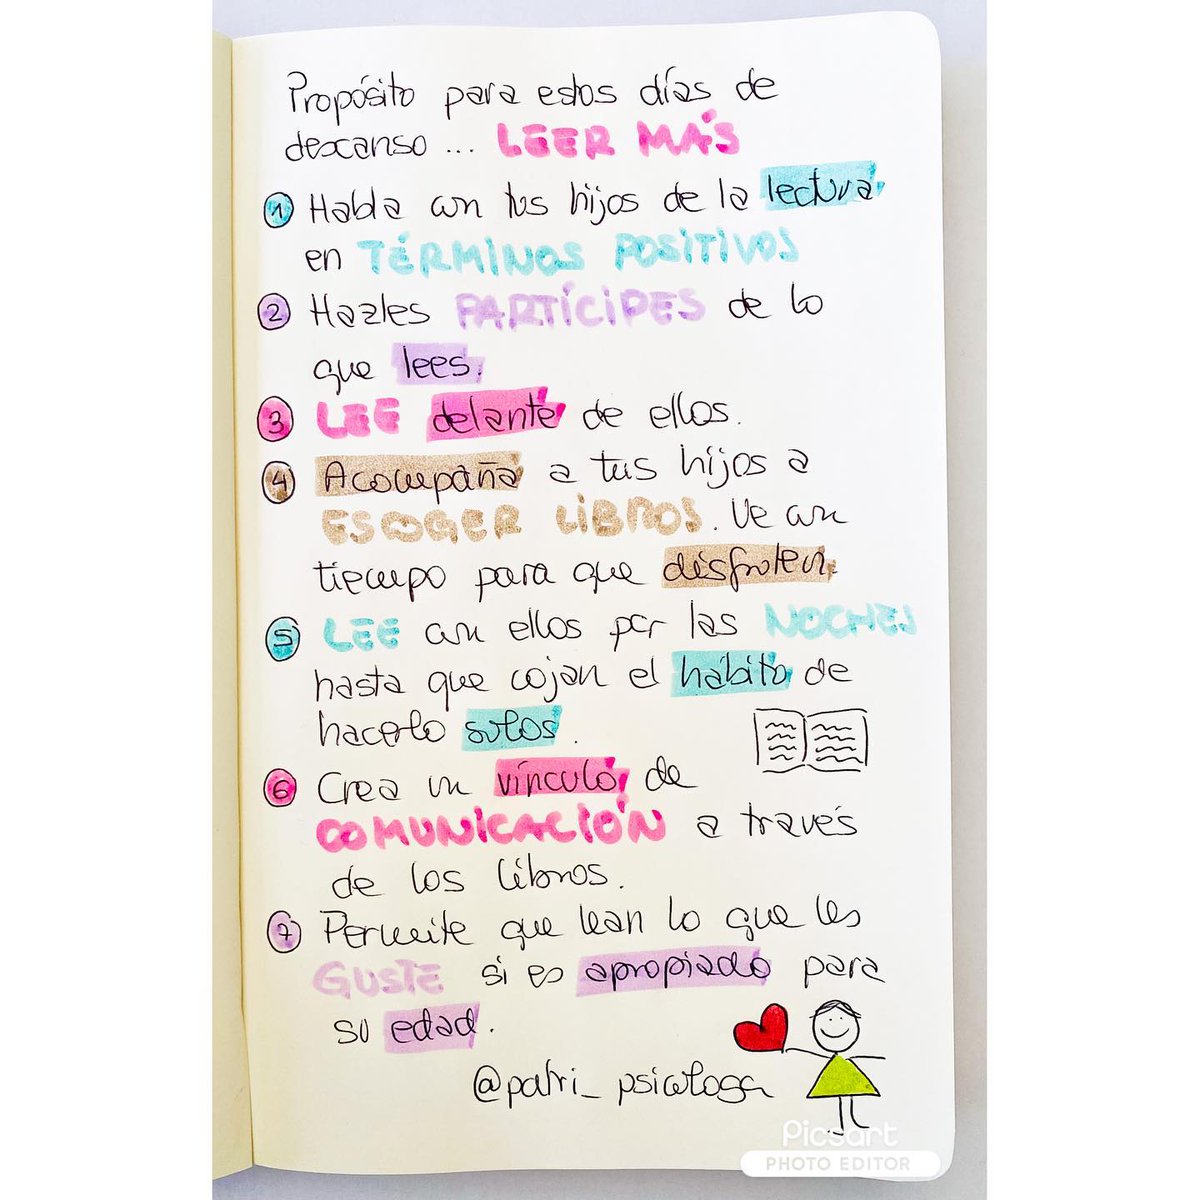 Propósito para estos días de
descanso... LEER MÁS
1 Habla con tus hijos de la lectura
en TÉRMINOS POSITIVOS
2 Hazles PARTÍCIPES de lo
que lees.
3 LEE delante de ellos.
4 Acompaña a tus hijos a
ESCOGER LIBROS. Ve con
tiempo para que disfruten.
5 LEE con ellos por las NOCHES
hasta que cojan el hábito de
hacerlo solos.
6 Crea un vínculo de
COMUNICACIÓN a través
de los libros.
7 Permite que lean lo que les
GUSTE si es apropiado para
su edad.
@patri_psicologa
Picsart
PHOTO EDITOR